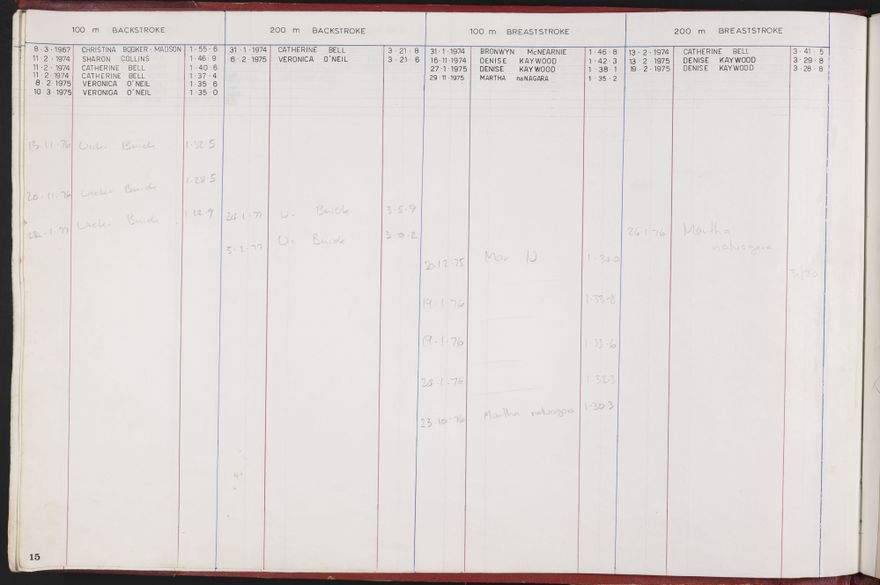 100 m BACKSTROKE
8·3·1967 CHRISTINA BOOKER-MADSON 1·55·6
11·2·1974 SHARON COLLINS 1·46·9
11·2·1974 CATHERINE BELL 1·40·6
11·2·1974 CATHERINE BELL 1·37·4
8·2·1975 VERONICA O'NEIL 1·35·6
10·3·1975 VERONICA O'NEIL 1·35·0
13·11·76 1·32·5
20·11·76 1·28·5
1·77 1·22·9
200 m BACKSTROKE
31·1·1974 CATHERINE BELL 3·21·8
6·2·1975 VERONICA O'NEIL 3·21·6
1·77 U. 3·5·9
5·2·77 U. 3·0·2
100 m BREASTSTROKE
31·1·1974 BRONWYN McNEARNIE 1·46·8
16·11·1974 DENISE KAYWOOD 1·42·3
27·1·1975 DENISE KAYWOOD 1·38·1
29·11·1975 MARTHA naNAGARA 1·35·2
20·12·75 Mar N 1·34·0
19·1·76 1·33·8
19·1·76 1·33·6
24·1·76 1·32·3
23·10·76 Martha nalnagara 1·30·3
200 m BREASTSTROKE
13·2·1974 CATHERINE BELL 3·41·5
13·2·1975 DENISE KAYWOOD 3·29·8
19·2·1975 DENISE KAYWOOD 3·28·8
26·1·76 Martha
nalnagara
15